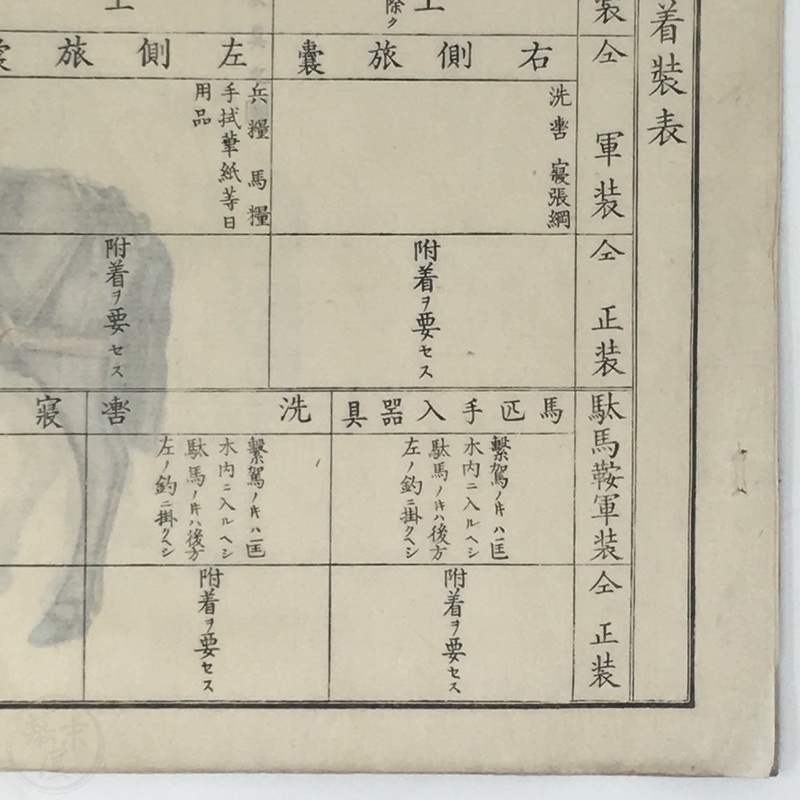 着裝表
仝 軍装
右側旅嚢
洗轡 寢張綱
左側旅
兵糧 馬糧
手拭筆紙等日
用品
仝 正装
附着ヲ要セス
附着ヲ要セス
駄馬鞍軍装
馬匹手入器具
繋駕ノ𪜈ハ匡
木内ニ入ルヘシ
駄馬ノ𪜈ハ後方
左ノ釣ニ掛クヘシ
洗轡
繋駕ノ𪜈ハ匡
木内ニ入ルヘシ
駄馬ノ𪜈ハ後方
左ノ釣ニ掛クヘシ
寢
仝 正装
附着ヲ要セス
附着ヲ要セス